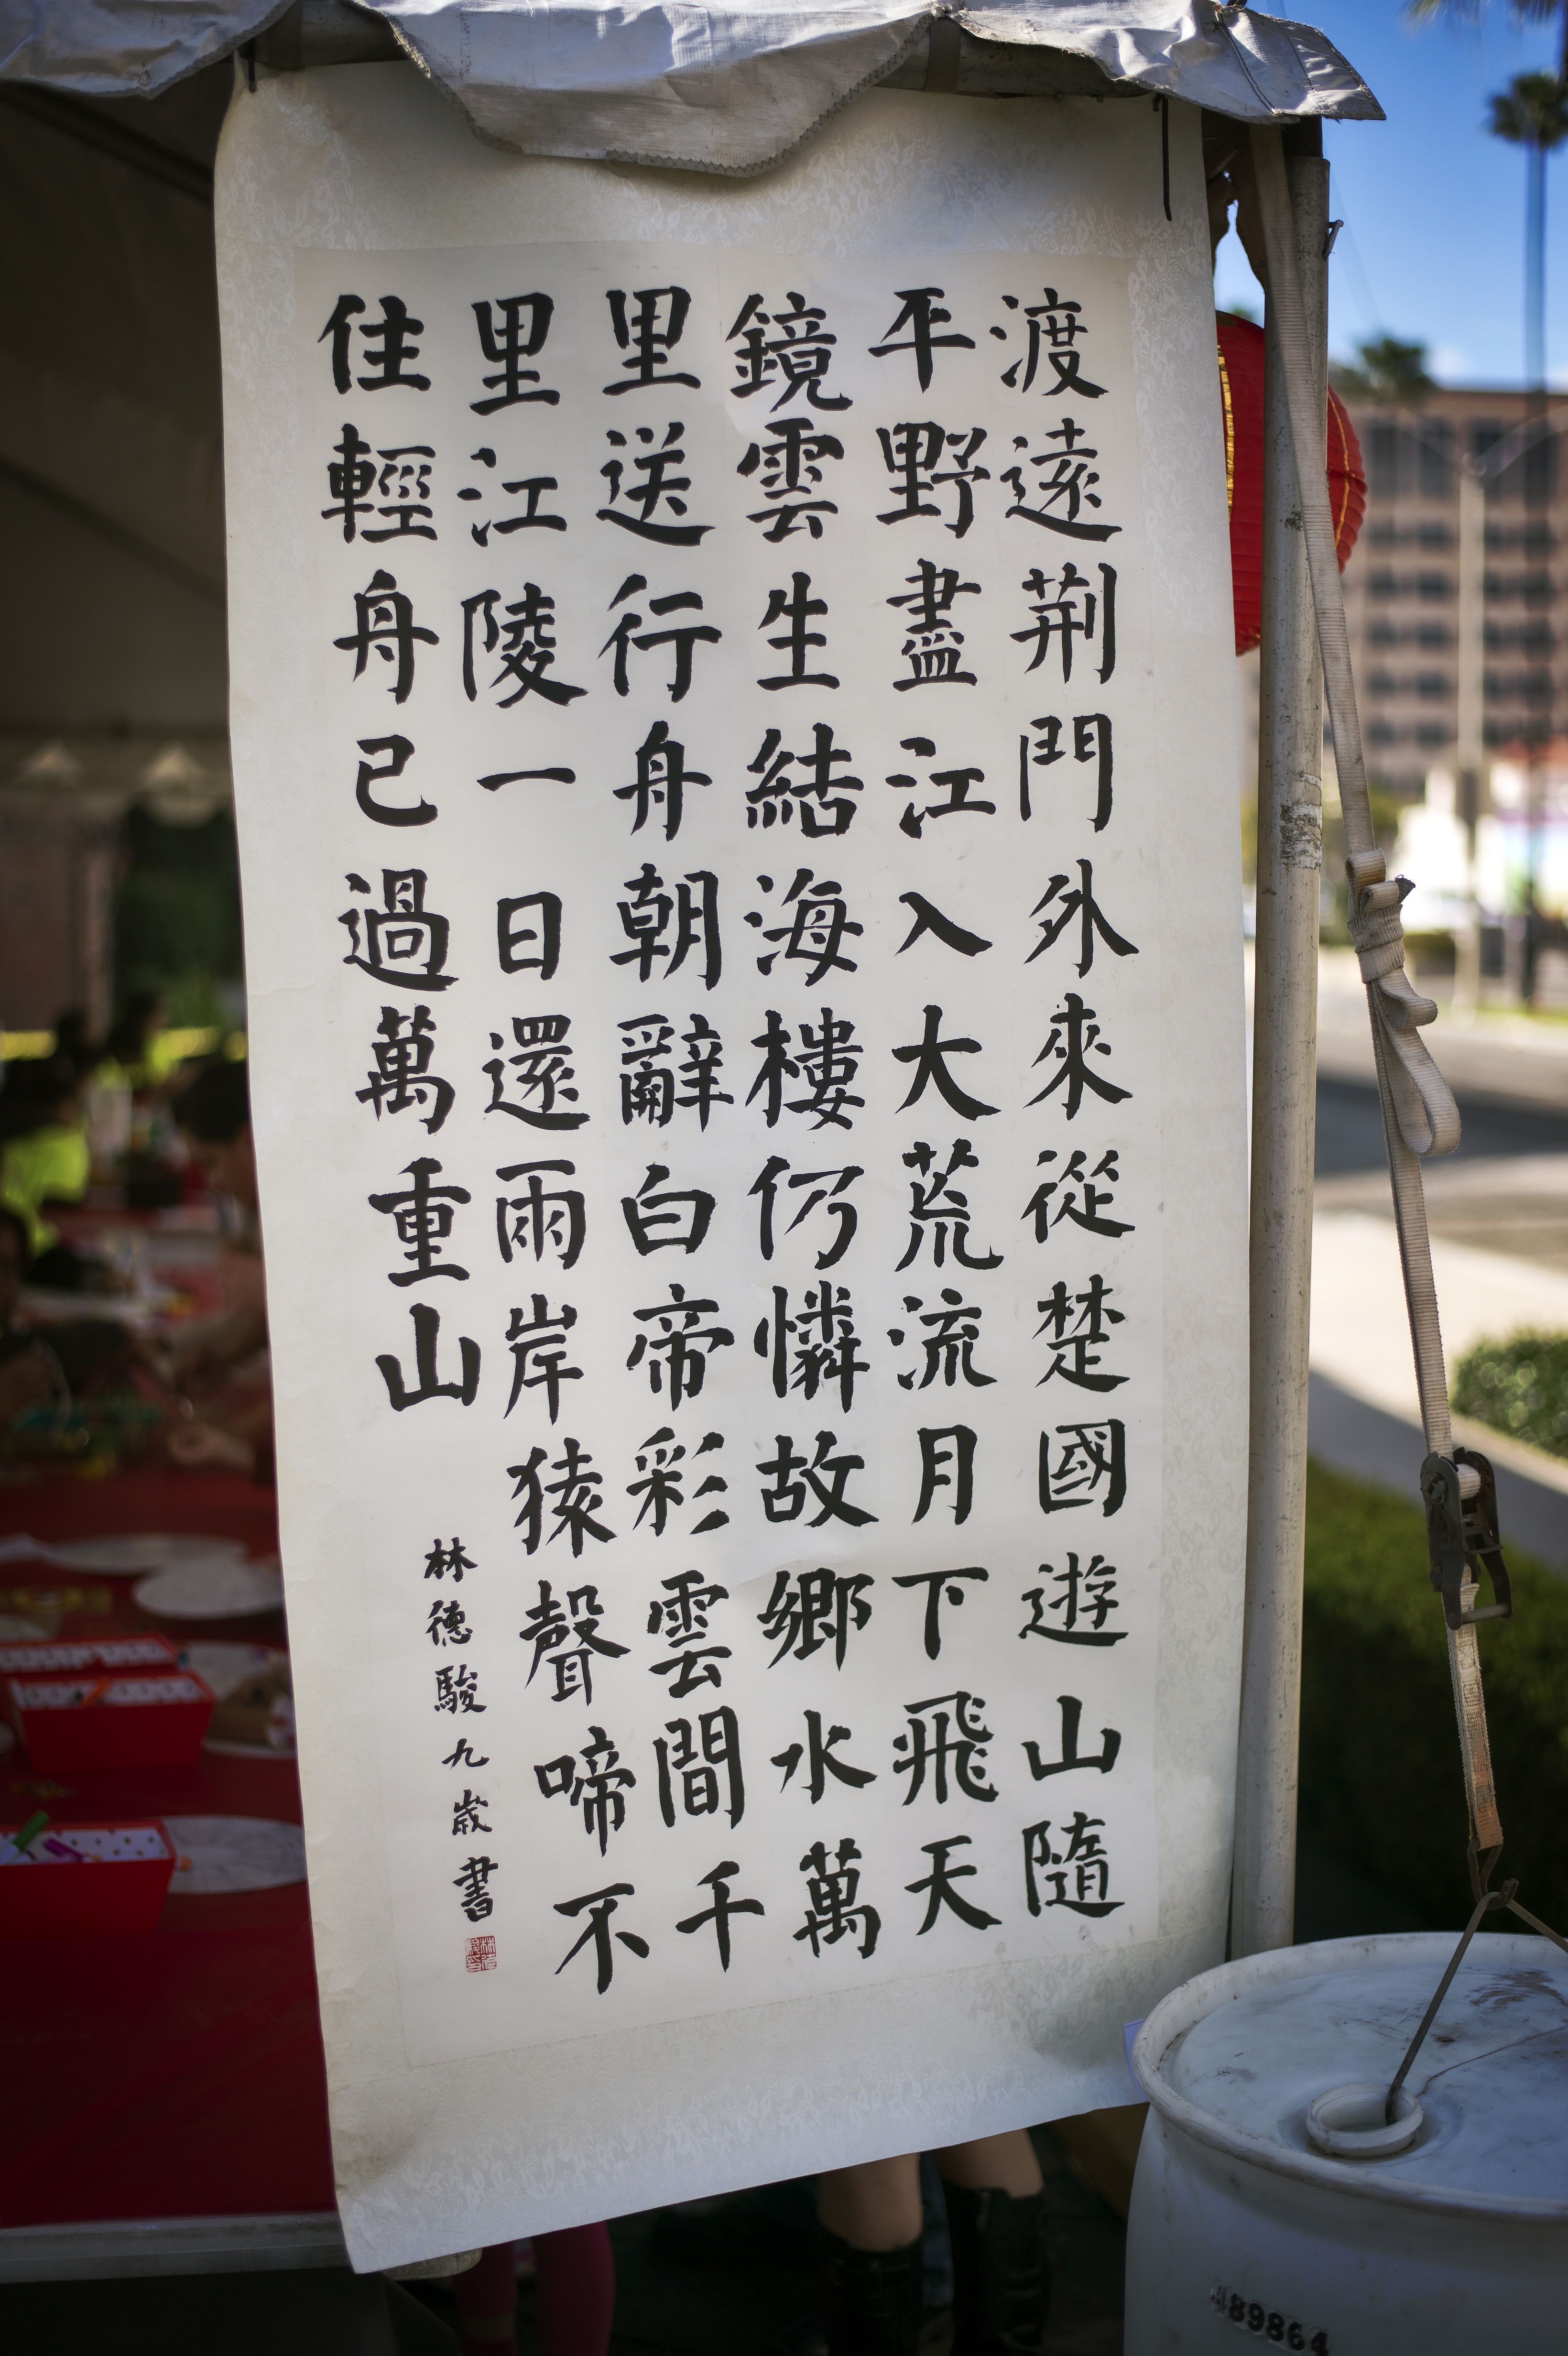 渡遠荊門外來從楚國遊山隨
平野盡江入大荒流月下飛天
鏡雲生結海樓仍憐故鄉水萬
里送行舟朝辭白帝彩雲間千
里江陵一日還兩岸猿聲啼不
住輕舟已過萬重山
林德駿九歲書